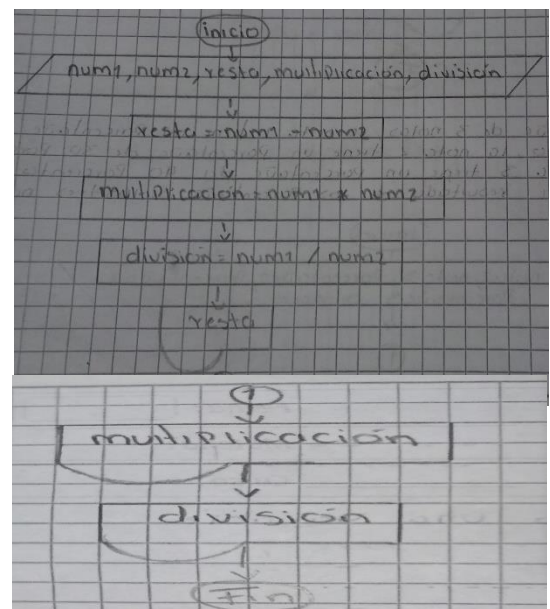 inicio
num1, num2, resta, multiplicación, división
resta = num1 - num2
multiplicación = num1 * num2
división = num1 / num2
resta
1
multiplicación
división
Fin